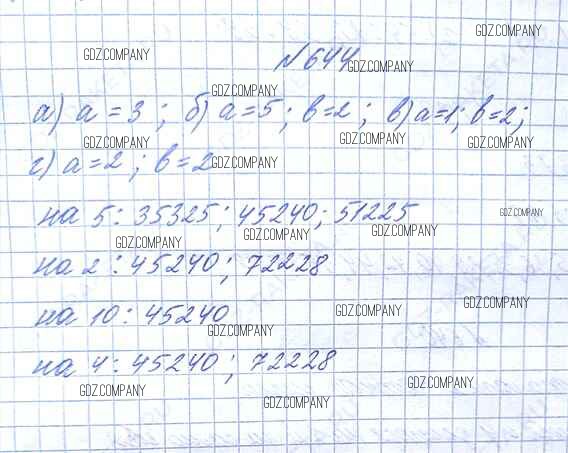 GDZ.COMPANY
GDZ.COMPANY
№644
GDZ.COMPANY
GDZ.COMPANY
а) a = 3 ; б) a = 5 ; b = 2 ; в) a = 1 ; b = 2 ;
GDZ.COMPANY GDZ.COMPANY GDZ.COMPANY
г) a = 2 ; b = 2
GDZ.COMPANY
на 5 : 35325 ; 45240 ; 51225
GDZ.COMPANY
GDZ.COMPANY GDZ.COMPANY GDZ.COMPANY
на 2 : 45240 ; 72228
на 10 : 45240
GDZ.COMPANY GDZ.COMPANY GDZ.COMPANY
на 4 : 45240 ; 72228
GDZ.COMPANY GDZ.COMPANY GDZ.COMPANY